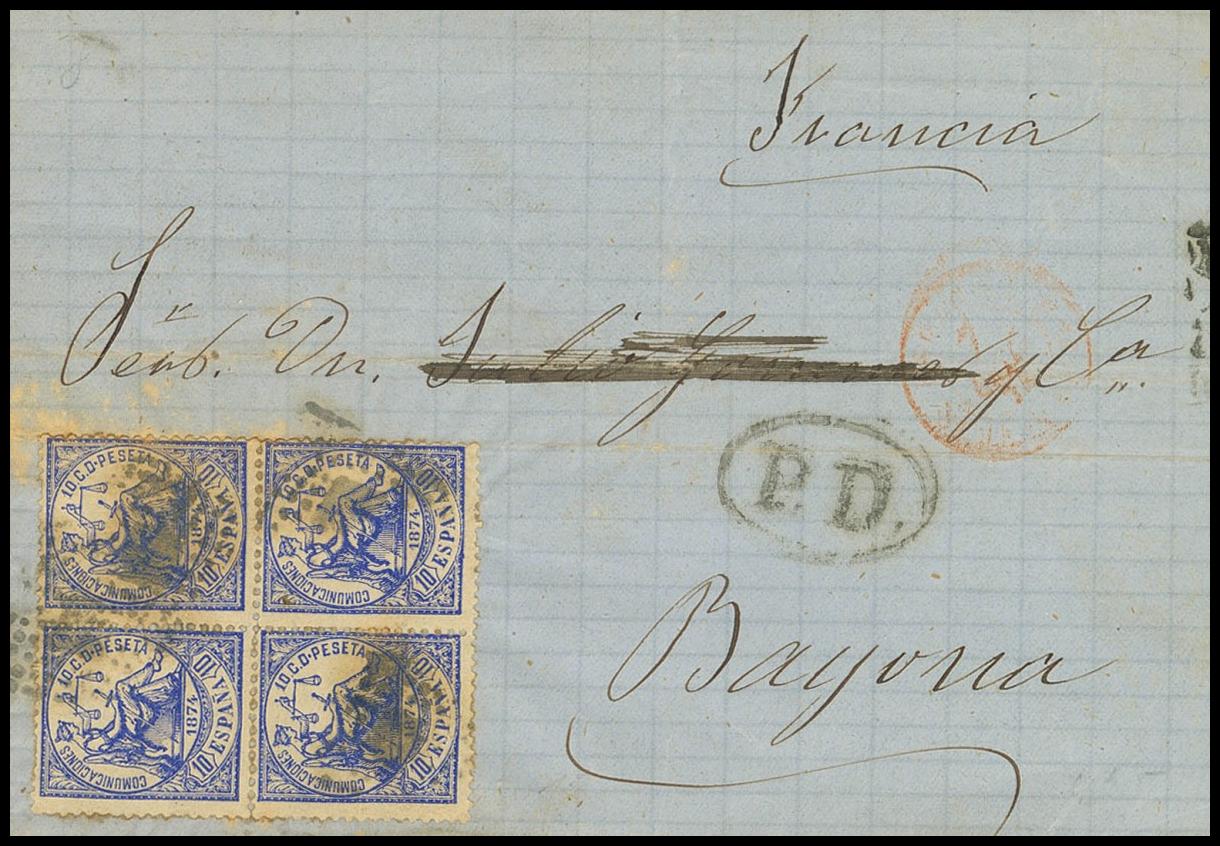 Francia
Señr. Dn. Julio y Ca.
P.D.
Bayona
10 C. D. PESETA
COMUNICACIONES
1874
10 ESPAÑA 10
10 C. D. PESETA
COMUNICACIONES
1874
10 ESPAÑA 10
10 C. D. PESETA
COMUNICACIONES
1874
10 ESPAÑA 10
10 C. D. PESETA
COMUNICACIONES
1874
10 ESPAÑA 10